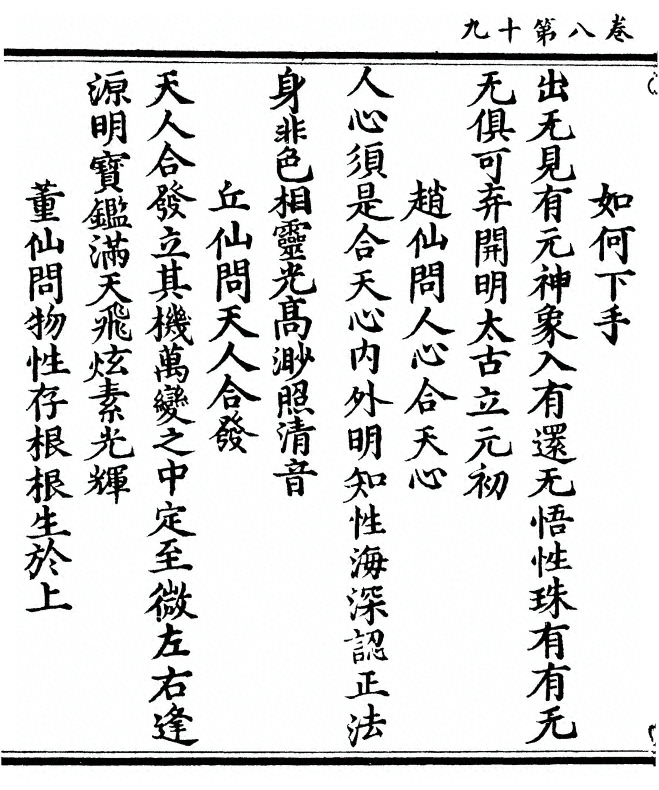 卷八第十九
如何下手
出无見有元神象入有還无悟性珠有有无
无俱可弃開明太古立元初
趙仙問人心合天心
人心須是合天心内外明知性海深認正法
身非色相靈光高渺照清音
丘仙問天人合發
天人合發立其機萬變之中定至微左右逢
源明寶鑑滿天飛炫素光輝
董仙問物性存根根生於上